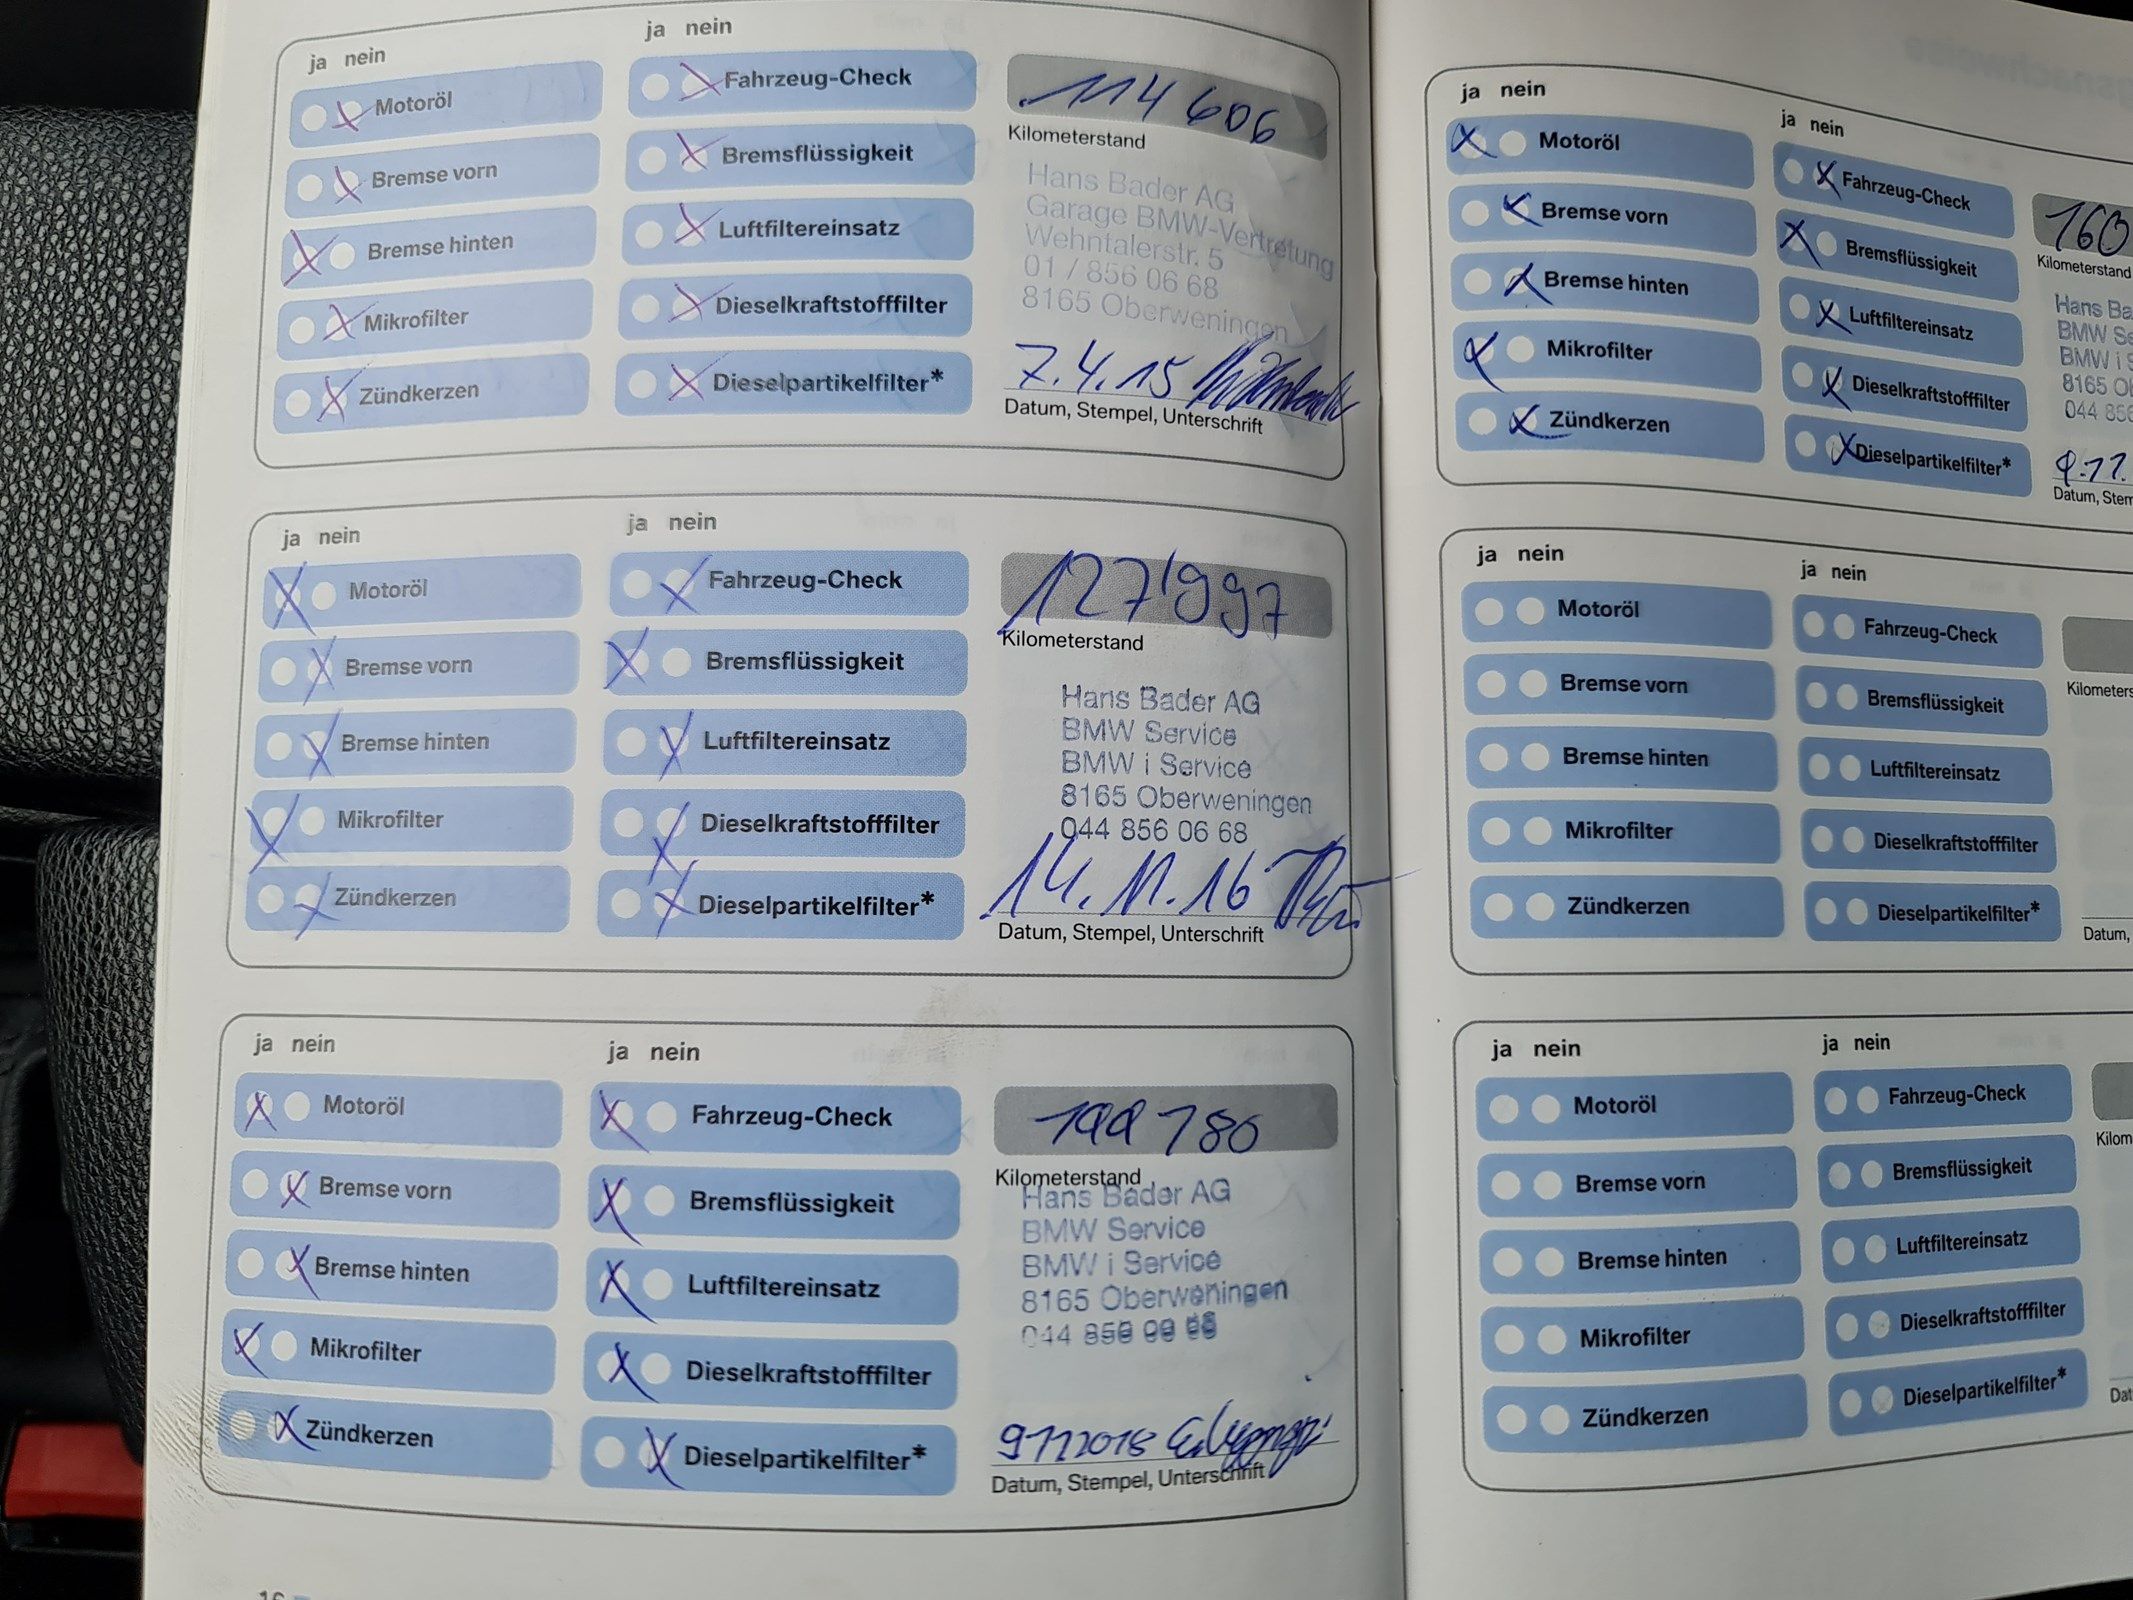 ja nein
ja nein
Motoröl
Fahrzeug-Check
114 606
Bremse vorn
Bremsflüssigkeit
Kilometerstand
Bremse hinten
Luftfiltereinsatz
Mikrofilter
Dieselkraftstofffilter
Zündkerzen
Dieselpartikelfilter*
Hans Bader AG
Garage BMW-Vertretung
Wehntalerstr. 5
01 / 856 06 68
8165 Oberweningen
7.4.15
Datum, Stempel, Unterschrift
ja nein
ja nein
Motoröl
Fahrzeug-Check
127'997
Bremse vorn
Bremsflüssigkeit
Kilometerstand
Bremse hinten
Luftfiltereinsatz
Mikrofilter
Dieselkraftstofffilter
Zündkerzen
Dieselpartikelfilter*
Hans Bader AG
BMW Service
BMW i Service
8165 Oberweningen
044 856 06 68
14.11.16
Datum, Stempel, Unterschrift
ja nein
ja nein
Motoröl
Fahrzeug-Check
Bremse vorn
Bremsflüssigkeit
Kilometerstand
Bremse hinten
Luftfiltereinsatz
Mikrofilter
Dieselkraftstofffilter
Zündkerzen
Dieselpartikelfilter*
Hans Bader AG
BMW Service
BMW i Service
8165 Oberweningen
044
Datum, Stempel, Unterschrift
16
ja nein
ja nein
Motoröl
Fahrzeug-Check
160
Bremse vorn
Bremsflüssigkeit
Kilometerstand
Bremse hinten
Luftfiltereinsatz
Mikrofilter
Dieselkraftstofffilter
Zündkerzen
Dieselpartikelfilter*
Hans Ba
BMW Se
BMW i S
8165 O
044 856
Datum, Stem
ja nein
ja nein
Motoröl
Fahrzeug-Check
Bremse vorn
Bremsflüssigkeit
Kilometers
Bremse hinten
Luftfiltereinsatz
Mikrofilter
Dieselkraftstofffilter
Zündkerzen
Dieselpartikelfilter*
Datum,
ja nein
ja nein
Motoröl
Fahrzeug-Check
Bremse vorn
Bremsflüssigkeit
Kilom
Bremse hinten
Luftfiltereinsatz
Mikrofilter
Dieselkraftstofffilter
Zündkerzen
Dieselpartikelfilter*
Dat